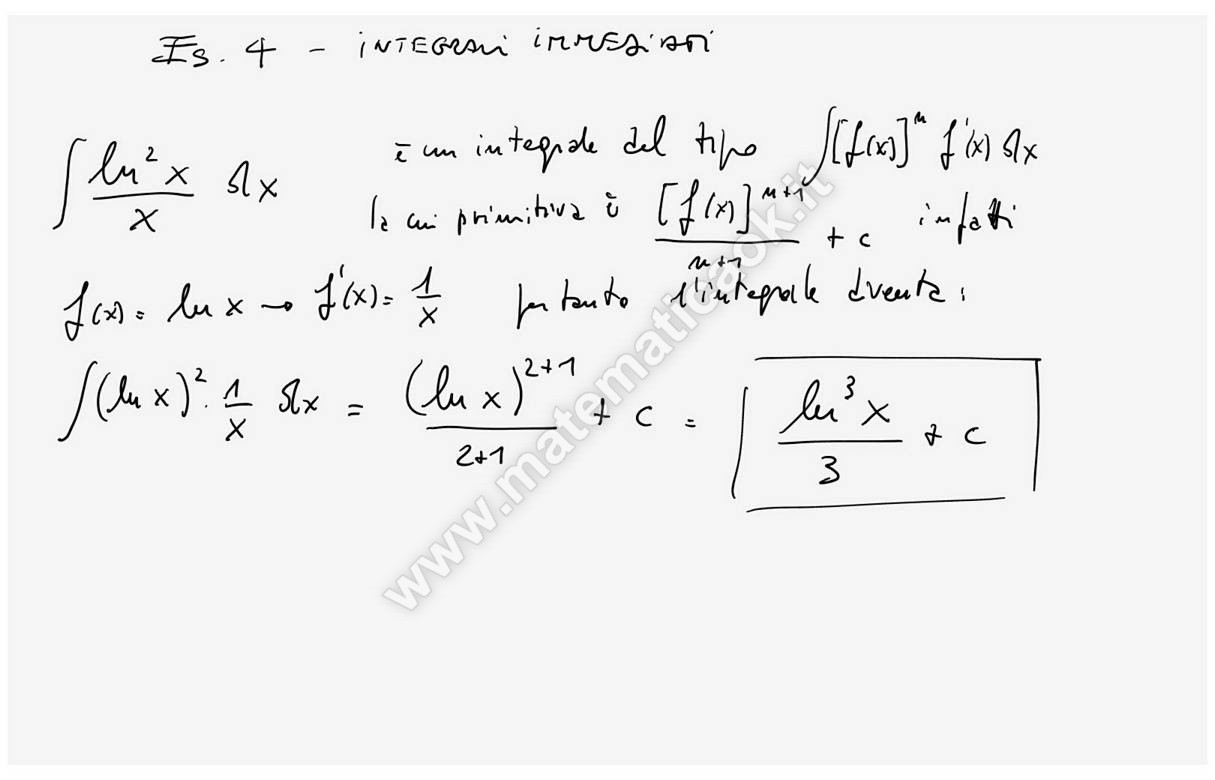 Es. 4 - INTEGRALI IMMEDIATI
∫ ln² x / x dx è un integrale del tipo ∫ [f(x)]ⁿ f'(x) dx
la cui primitiva è [f(x)]ⁿ⁺¹ / n+1 + c infatti
f(x) = ln x → f'(x) = 1/x pertanto l'integrale diventa:
∫ (ln x)² · 1/x dx = (ln x)²⁺¹ / 2+1 + c = ln³ x / 3 + c
www.matematicaok.it